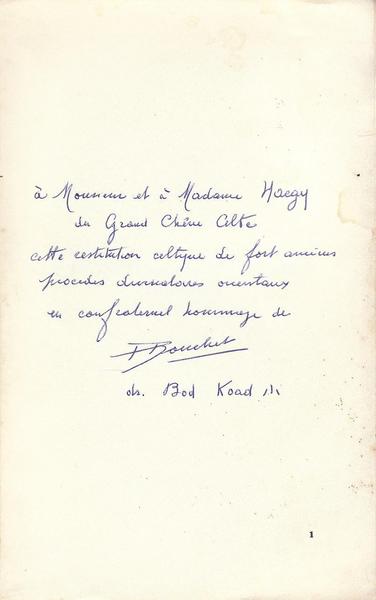 à Monsieur et à Madame Haegy
du Grand Chêne Celte
cette restitution celtique de fort anciens
procédés divinatoires orientaux
en confraternel hommage de
P Bouchet
dr. Bod Koad /|\
1